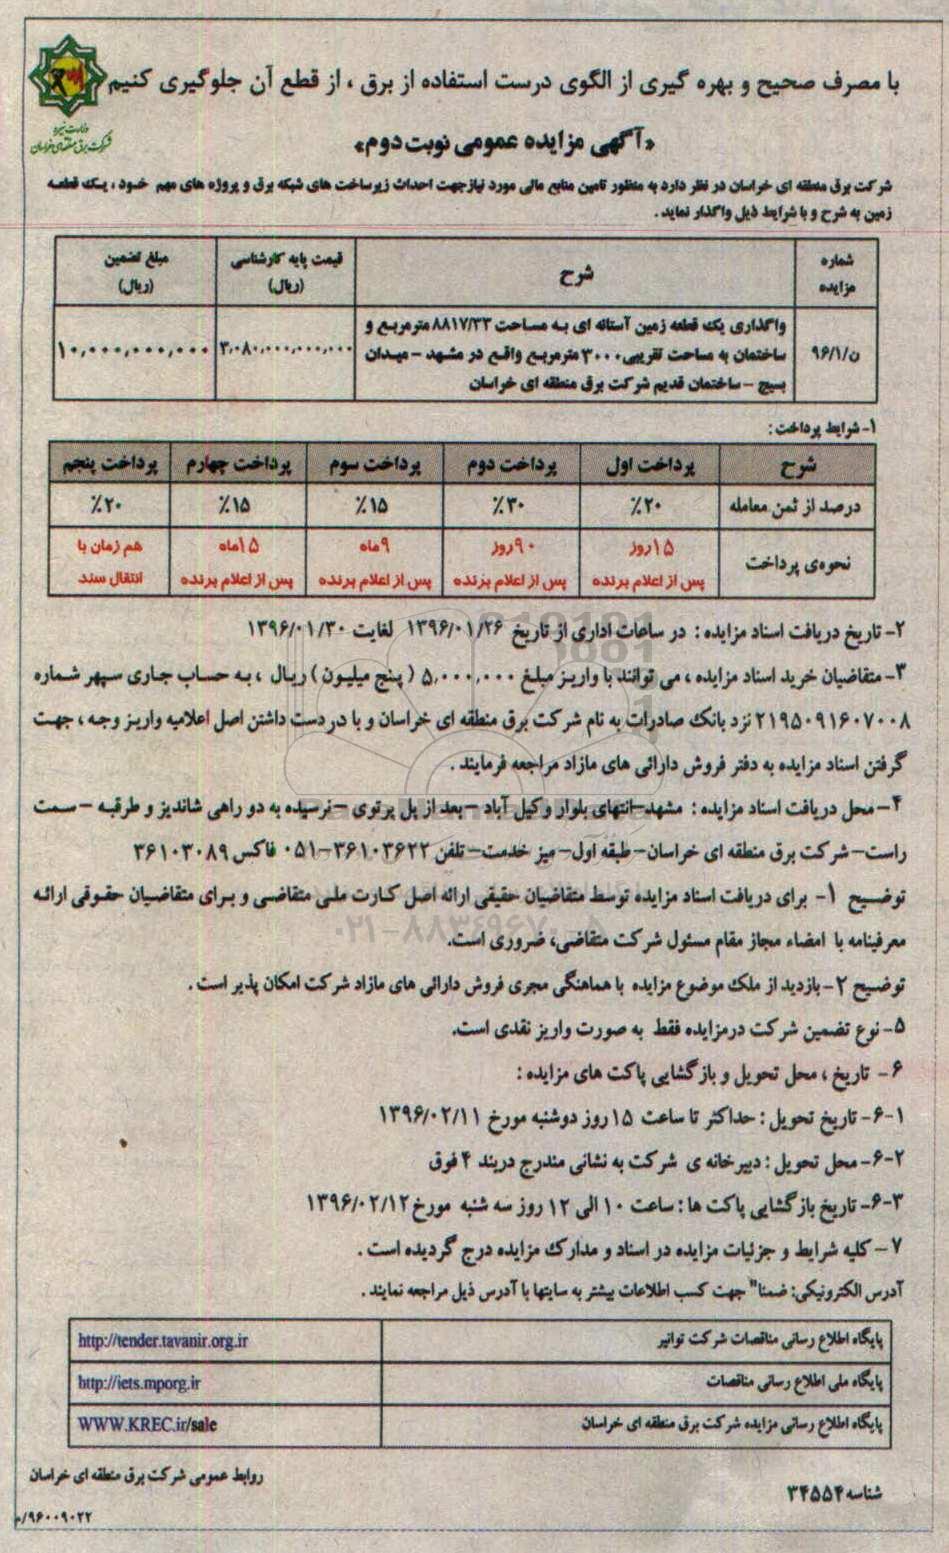 با مصرف صحیح و بهره گیری از الگوی درست استفاده از برق ، از قطع آن جلوگیری کنیم
وزارت نیرو
شرکت برق منطقه‌ای خراسان
«آگهی مزایده عمومی نوبت دوم»
شرکت برق منطقه ای خراسان در نظر دارد به منظور تامین منابع مالی مورد نیازجهت احداث زیرساخت های شبکه برق و پروژه های مهم خود ، یک قطعه
زمین به شرح و با شرایط ذیل واگذار نماید .
شماره مزایده	شرح	قیمت پایه کارشناسی (ریال)	مبلغ تضمین (ریال)
ن/۹۶/۱	واگذاری یک قطعه زمین آستانه ای به مساحت ۸۸۱۷/۳۳ مترمربع و	۳،۰۸۰،۰۰۰،۰۰۰،۰۰۰	۱۰،۰۰۰،۰۰۰،۰۰۰
ساختمان به مساحت تقریبی ۳۰۰۰ مترمربع واقع در مشهد - میدان
بسیج - ساختمان قدیم شرکت برق منطقه ای خراسان
۱- شرایط پرداخت :
شرح	پرداخت اول	پرداخت دوم	پرداخت سوم	پرداخت چهارم	پرداخت پنجم
درصد از ثمن معامله	۲۰٪	۳۰٪	۱۵٪	۱۵٪	۲۰٪
نحوه‌ی پرداخت	۱۵روز پس از اعلام برنده	۹۰روز پس از اعلام برنده	۹ماه پس از اعلام برنده	۱۵ماه پس از اعلام برنده	هم زمان با انتقال سند
۲- تاریخ دریافت اسناد مزایده : در ساعات اداری از تاریخ ۱۳۹۶/۰۱/۲۶ لغایت ۱۳۹۶/۰۱/۳۰
۳- متقاضیان خرید اسناد مزایده ، می توانند با واریز مبلغ ۵،۰۰۰،۰۰۰ ( پنج میلیون ) ریال ، به حساب جاری سپهر شماره
۲۱۹۵۰۹۱۶۰۷۰۰۸ نزد بانک صادرات به نام شرکت برق منطقه ای خراسان و با در دست داشتن اصل اعلامیه واریز وجه ، جهت
گرفتن اسناد مزایده به دفتر فروش دارائی های مازاد مراجعه فرمایند .
۴- محل دریافت اسناد مزایده : مشهد-انتهای بلوار وکیل آباد - بعد از پل پرتوی - نرسیده به دو راهی شاندیز و طرقبه - سمت
راست- شرکت برق منطقه ای خراسان- طبقه اول- میز خدمت- تلفن ۳۶۱۰۳۶۲۲-۰۵۱ فاکس ۳۶۱۰۳۰۸۹
توضیح ۱- برای دریافت اسناد مزایده توسط متقاضیان حقیقی ارائه اصل کارت ملی متقاضی و برای متقاضیان حقوقی ارائه
معرفینامه با امضاء مجاز مقام مسئول شرکت متقاضی، ضروری است.
۰۲۱-۸۸۳۴۹۶۷۰-۵
توضیح ۲- بازدید از ملک موضوع مزایده با هماهنگی مجری فروش دارائی های مازاد شرکت امکان پذیر است .
۵- نوع تضمین شرکت درمزایده فقط به صورت واریز نقدی است.
۶- تاریخ ، محل تحویل و بازگشایی پاکت های مزایده :
۶-۱- تاریخ تحویل : حداکثر تا ساعت ۱۵ روز دوشنبه مورخ ۱۳۹۶/۰۲/۱۱
۶-۲- محل تحویل : دبیرخانه ی شرکت به نشانی مندرج دربند ۴ فوق
۶-۳- تاریخ بازگشایی پاکت ها : ساعت ۱۰ الی ۱۲ روز سه شنبه مورخ ۱۳۹۶/۰۲/۱۲
۷- کلیه شرایط و جزئیات مزایده در اسناد و مدارک مزایده درج گردیده است .
آدرس الکترونیکی: ضمنا" جهت کسب اطلاعات بیشتر به سایتها با آدرس ذیل مراجعه نمایند .
پایگاه اطلاع رسانی مناقصات شرکت توانیر	http://tender.tavanir.org.ir
پایگاه ملی اطلاع رسانی مناقصات	http://iets.mporg.ir
پایگاه اطلاع رسانی مزایده شرکت برق منطقه ای خراسان	WWW.KREC.ir/sale
روابط عمومی شرکت برق منطقه ای خراسان
شناسه ۳۴۵۵۴
۹۶۰۰۹۰۲۲/م